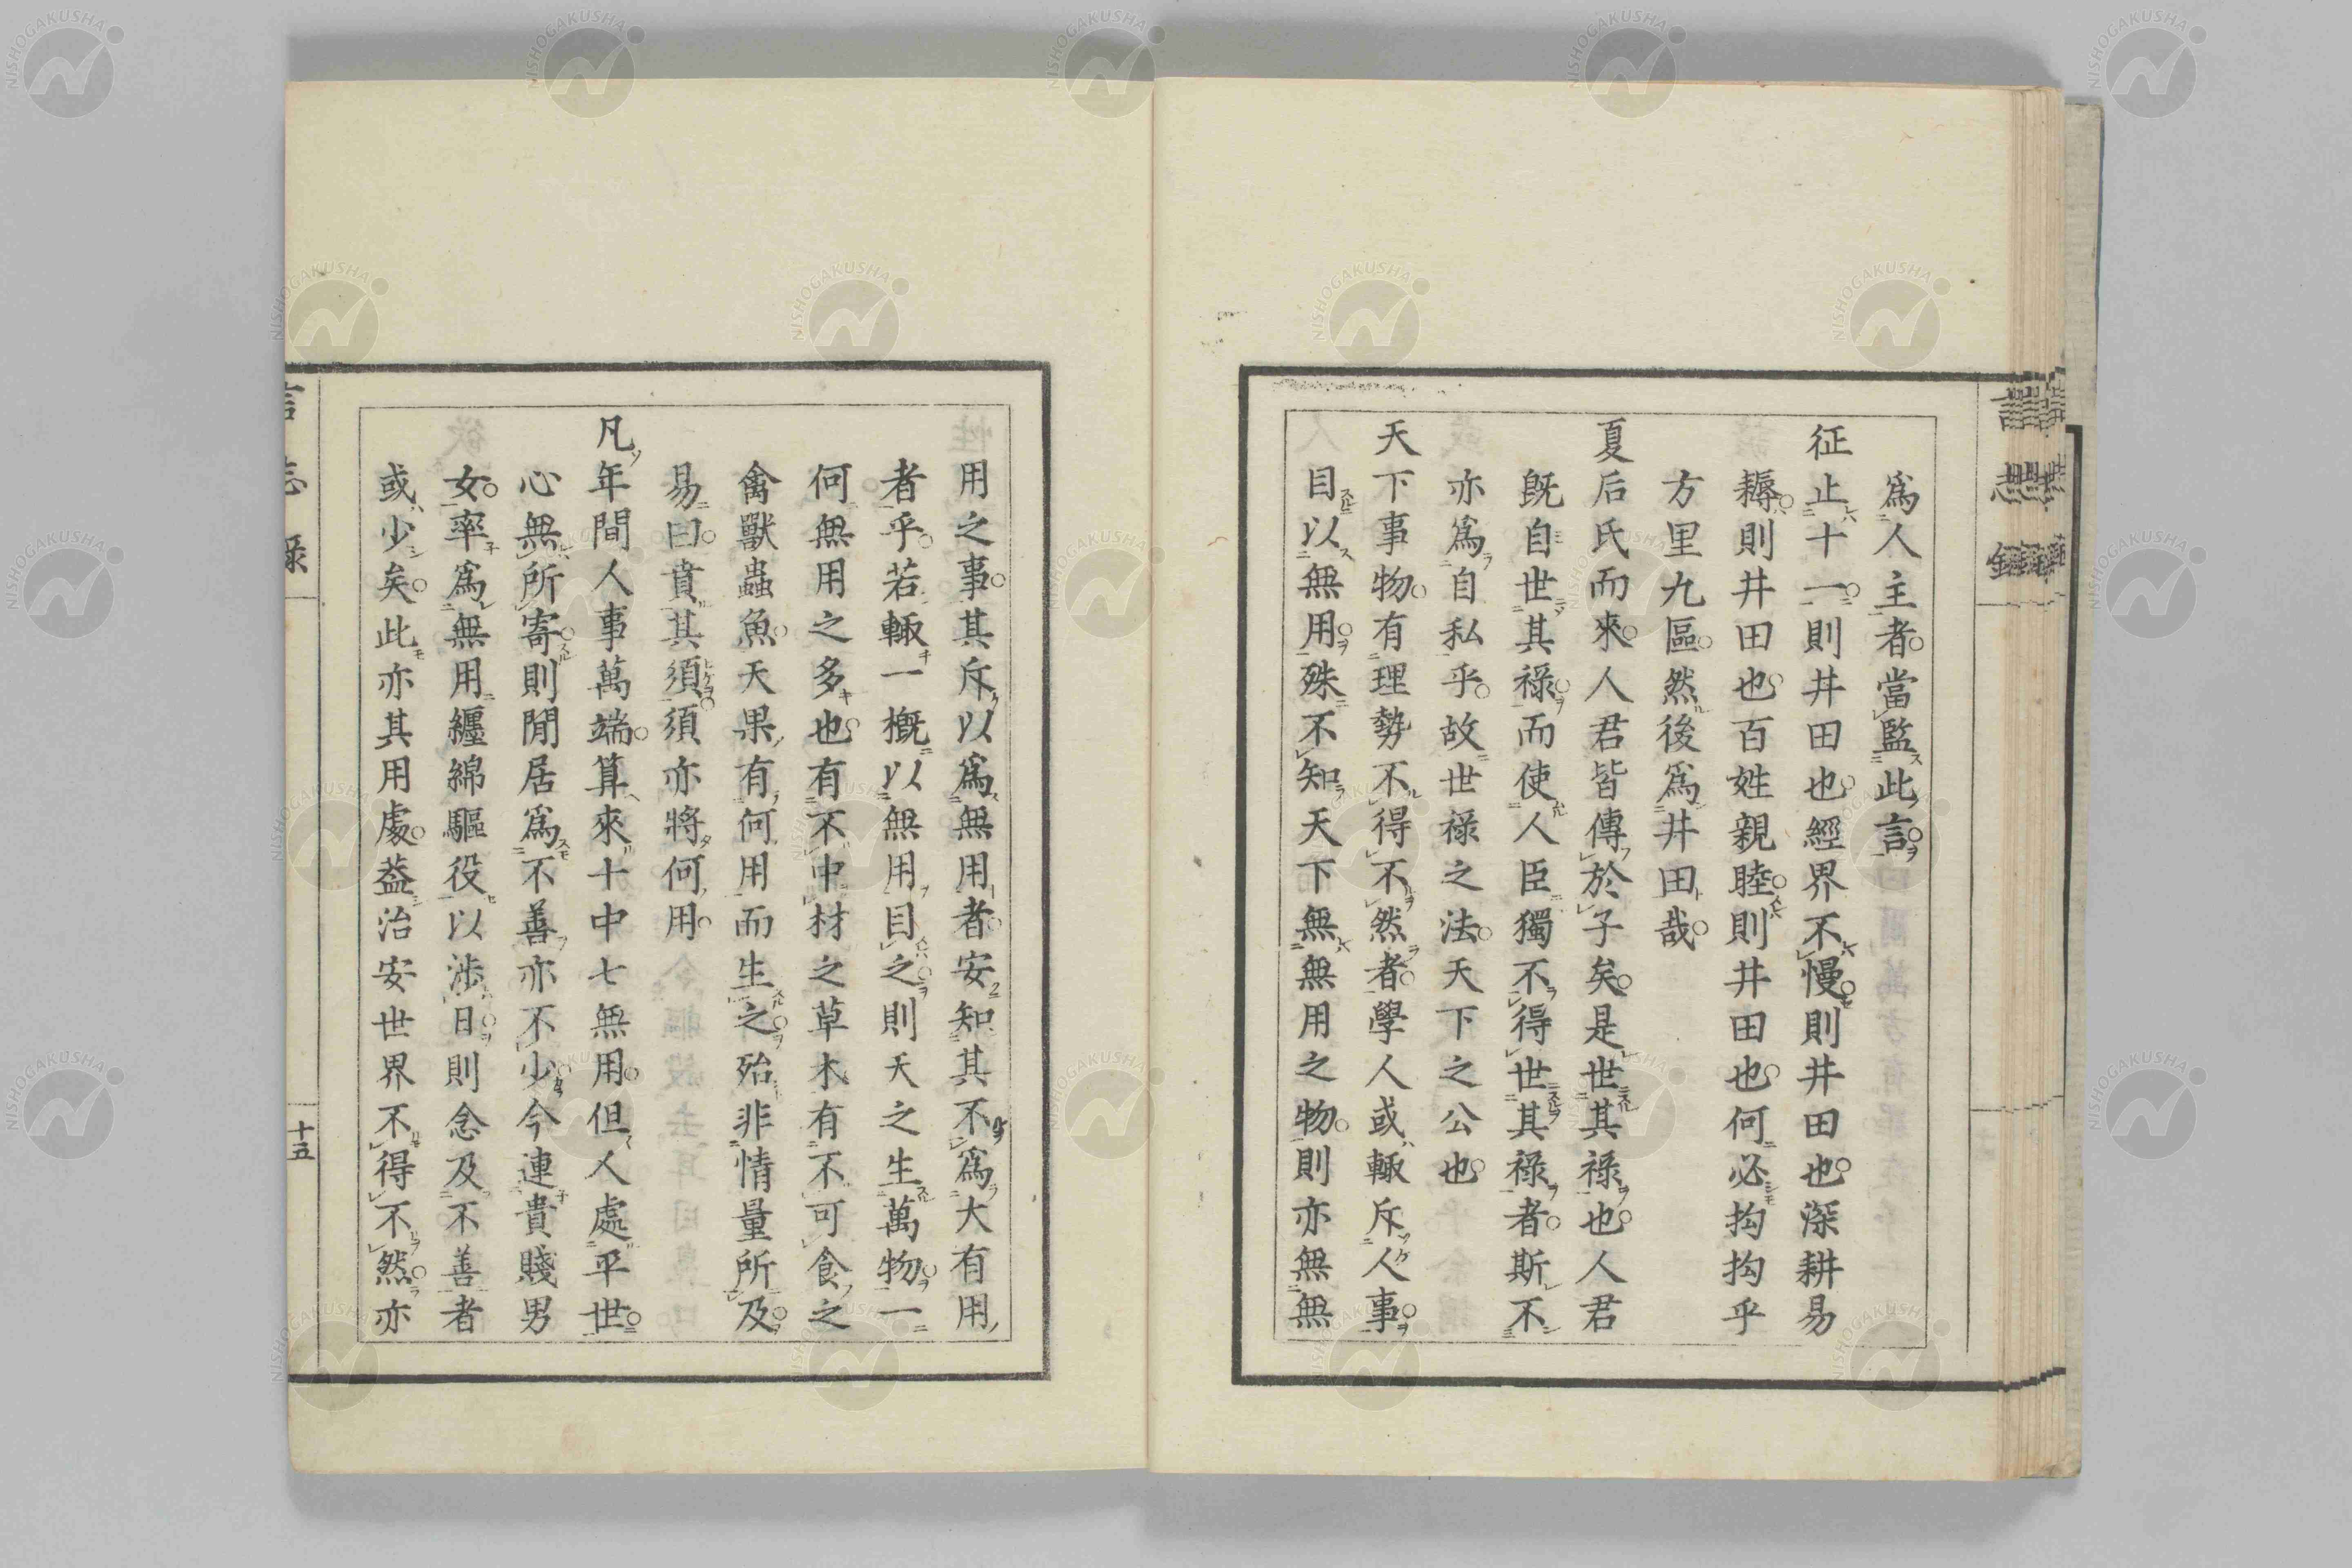 爲人主者當監此言
征止十一則井田也經界不慢則井田也深耕易
耨則井田也百姓親睦則井田也何必拘拘乎
方里九區然後爲井田哉
夏后氏而來人君皆傳於子矣是世其祿也人君
既自世其祿而使人臣獨不得世其祿者斯不
亦爲自私乎故世祿之法天下之公也
天下事物有理勢不得不然者學人或輙斥人事
目以無用殊不知天下無無用之物則亦無無
用之事其斥以爲無用者安知其不爲大有用
者乎若輙一概以無用目之則天之生萬物一
何無用之多也有不中材之草木有不可食之
禽獸蟲魚天果有何用而生之殆非情量所及
易曰賁其須須亦將何用
凡年間人事萬端算來十中七無用但人處平世
心無所寄則閒居爲不善亦不少今連貴賤男
女率爲無用纏綿驅役以涉日則念及不善者
或少矣此亦其用處葢治安世界不得不然亦
言志錄
十五
NISHOGAKUSHA